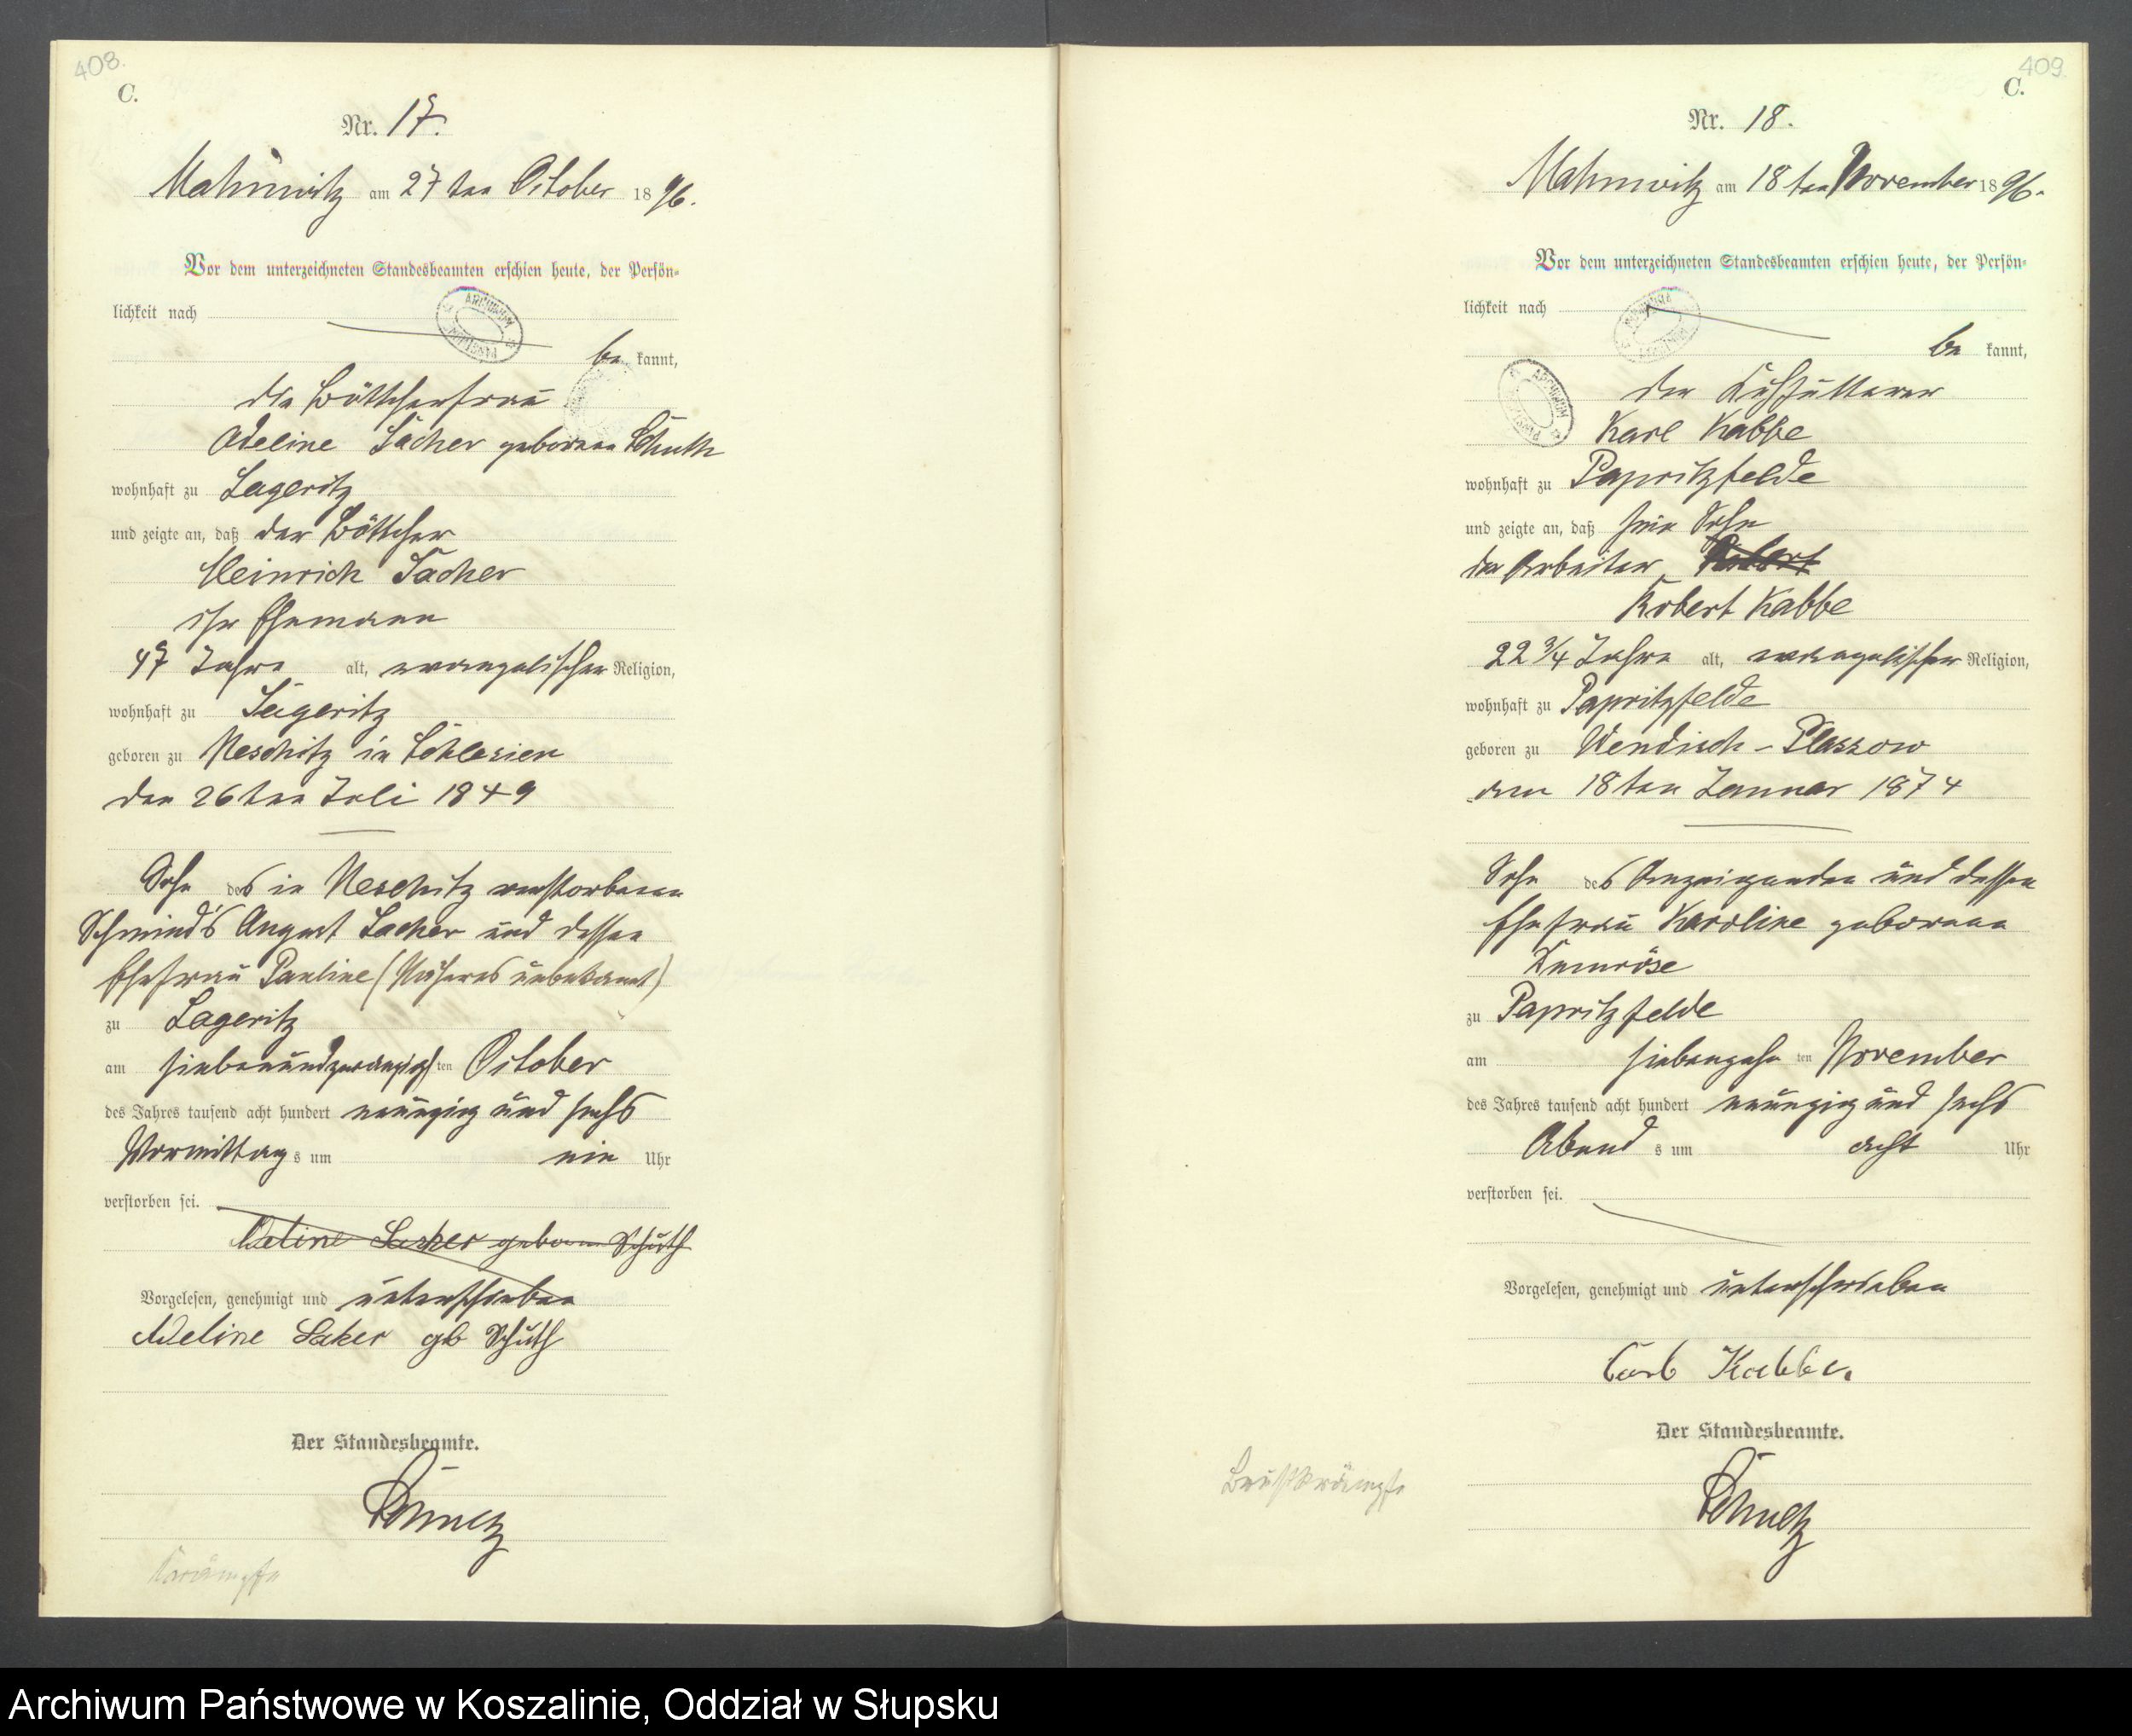 408.
C.
Nr. 17.
Mahnwitz am 27ten October 1896.
Vor dem unterzeichneten Standesbeamten erschien heute, der Persön-
lichkeit nach
be kannt,
die Böttcherfrau
Adeline Sacher geborene Schuth
wohnhaft zu Lageritz
und zeigte an, daß der Böttcher
Heinrich Sacher
ihr Ehemann
47 Jahre alt, evangelischer Religion,
wohnhaft zu Lageritz
geboren zu Neschitz in Schlesien
den 26ten Juli 1849
Sohn des in Neschitz verstorbenen
Schmied's August Sacher und dessen
Ehefrau Pauline (Näheres unbekannt)
zu Lageritz
am siebenundzwanzigsten October
des Jahres tausend acht hundert neunzig und sechs
Vormittags um ein Uhr
verstorben sei.
Adeline Sacker geboren Schuth
Vorgelesen, genehmigt und unterschrieben
Adeline Saker gb Schuth
Der Standesbeamte.
Krämpfe
409.
C.
Nr. 18.
Mahnwitz am 18ten November 1896.
Vor dem unterzeichneten Standesbeamten erschien heute, der Persön-
lichkeit nach
be kannt,
der Kuhfütterer
Karl Kabbe
wohnhaft zu Papritzfelde
und zeigte an, daß sein Sohn
der Arbeiter Robert
Robert Kabbe
22 3/4 Jahre alt, evangelischer Religion,
wohnhaft zu Papritzfelde
geboren zu Wendisch-Plassow
am 18ten Januar 1874
Sohn des Anzeigenden und dessen
Ehefrau Karoline geborene
Kumröse
zu Papritzfelde
am siebenzehnten November
des Jahres tausend acht hundert neunzig und sechs
Abends um acht Uhr
verstorben sei.
Vorgelesen, genehmigt und unterschrieben
Carl Kabbe.
Der Standesbeamte.
Brustkrämpfe
Archiwum Państwowe w Koszalinie, Oddział w Słupsku